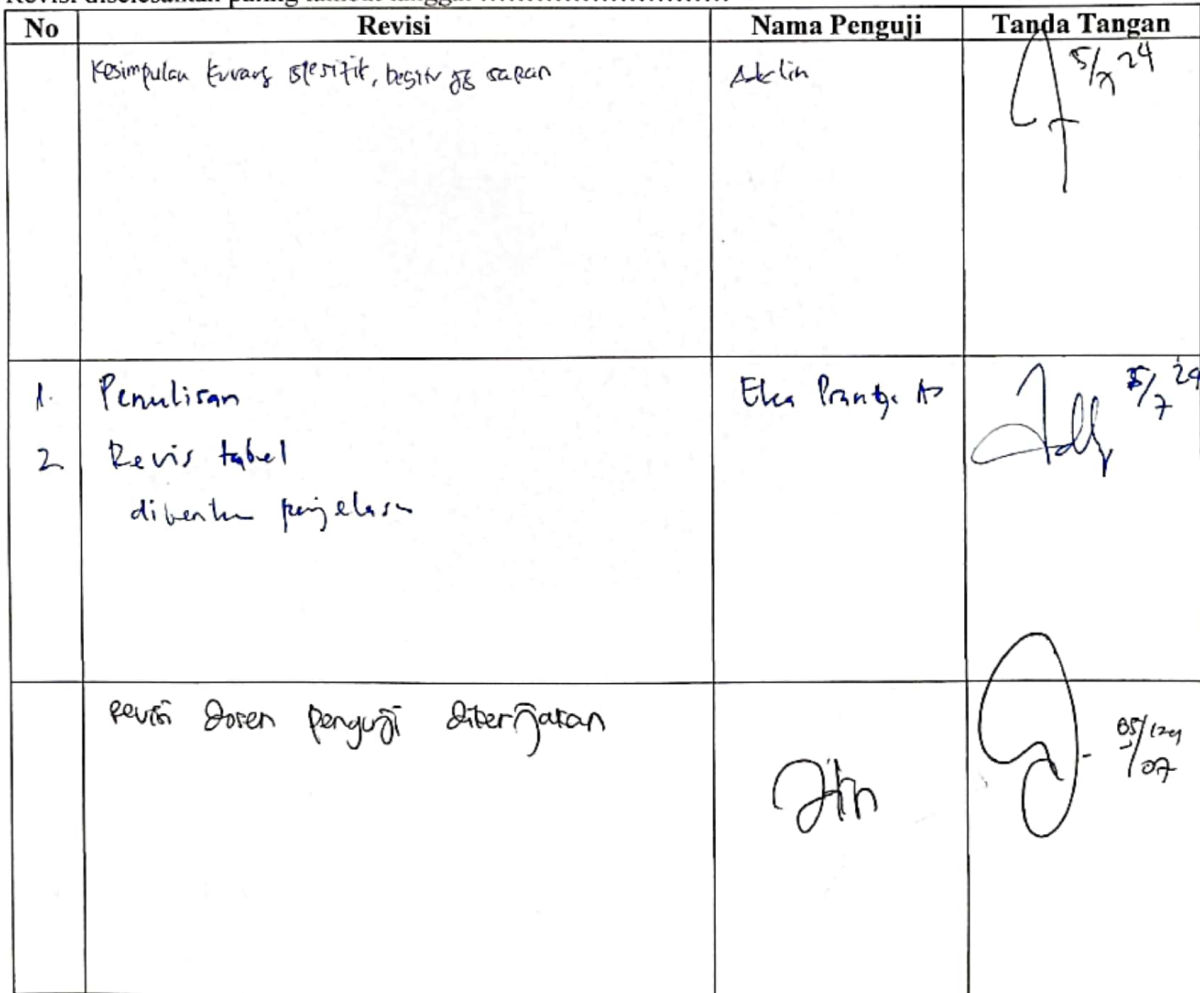 Revisi diselesaikan paling lambat tanggal ................................
No Revisi Nama Penguji Tanda Tangan
Kesimpulan kurang spesifik, begitu jg saran Adelin 5/7 24
1. Penulisan Eka 5/7 24
2. Revis tabel
penjelasan
revisi dosen penguji dikerjakan 05/07